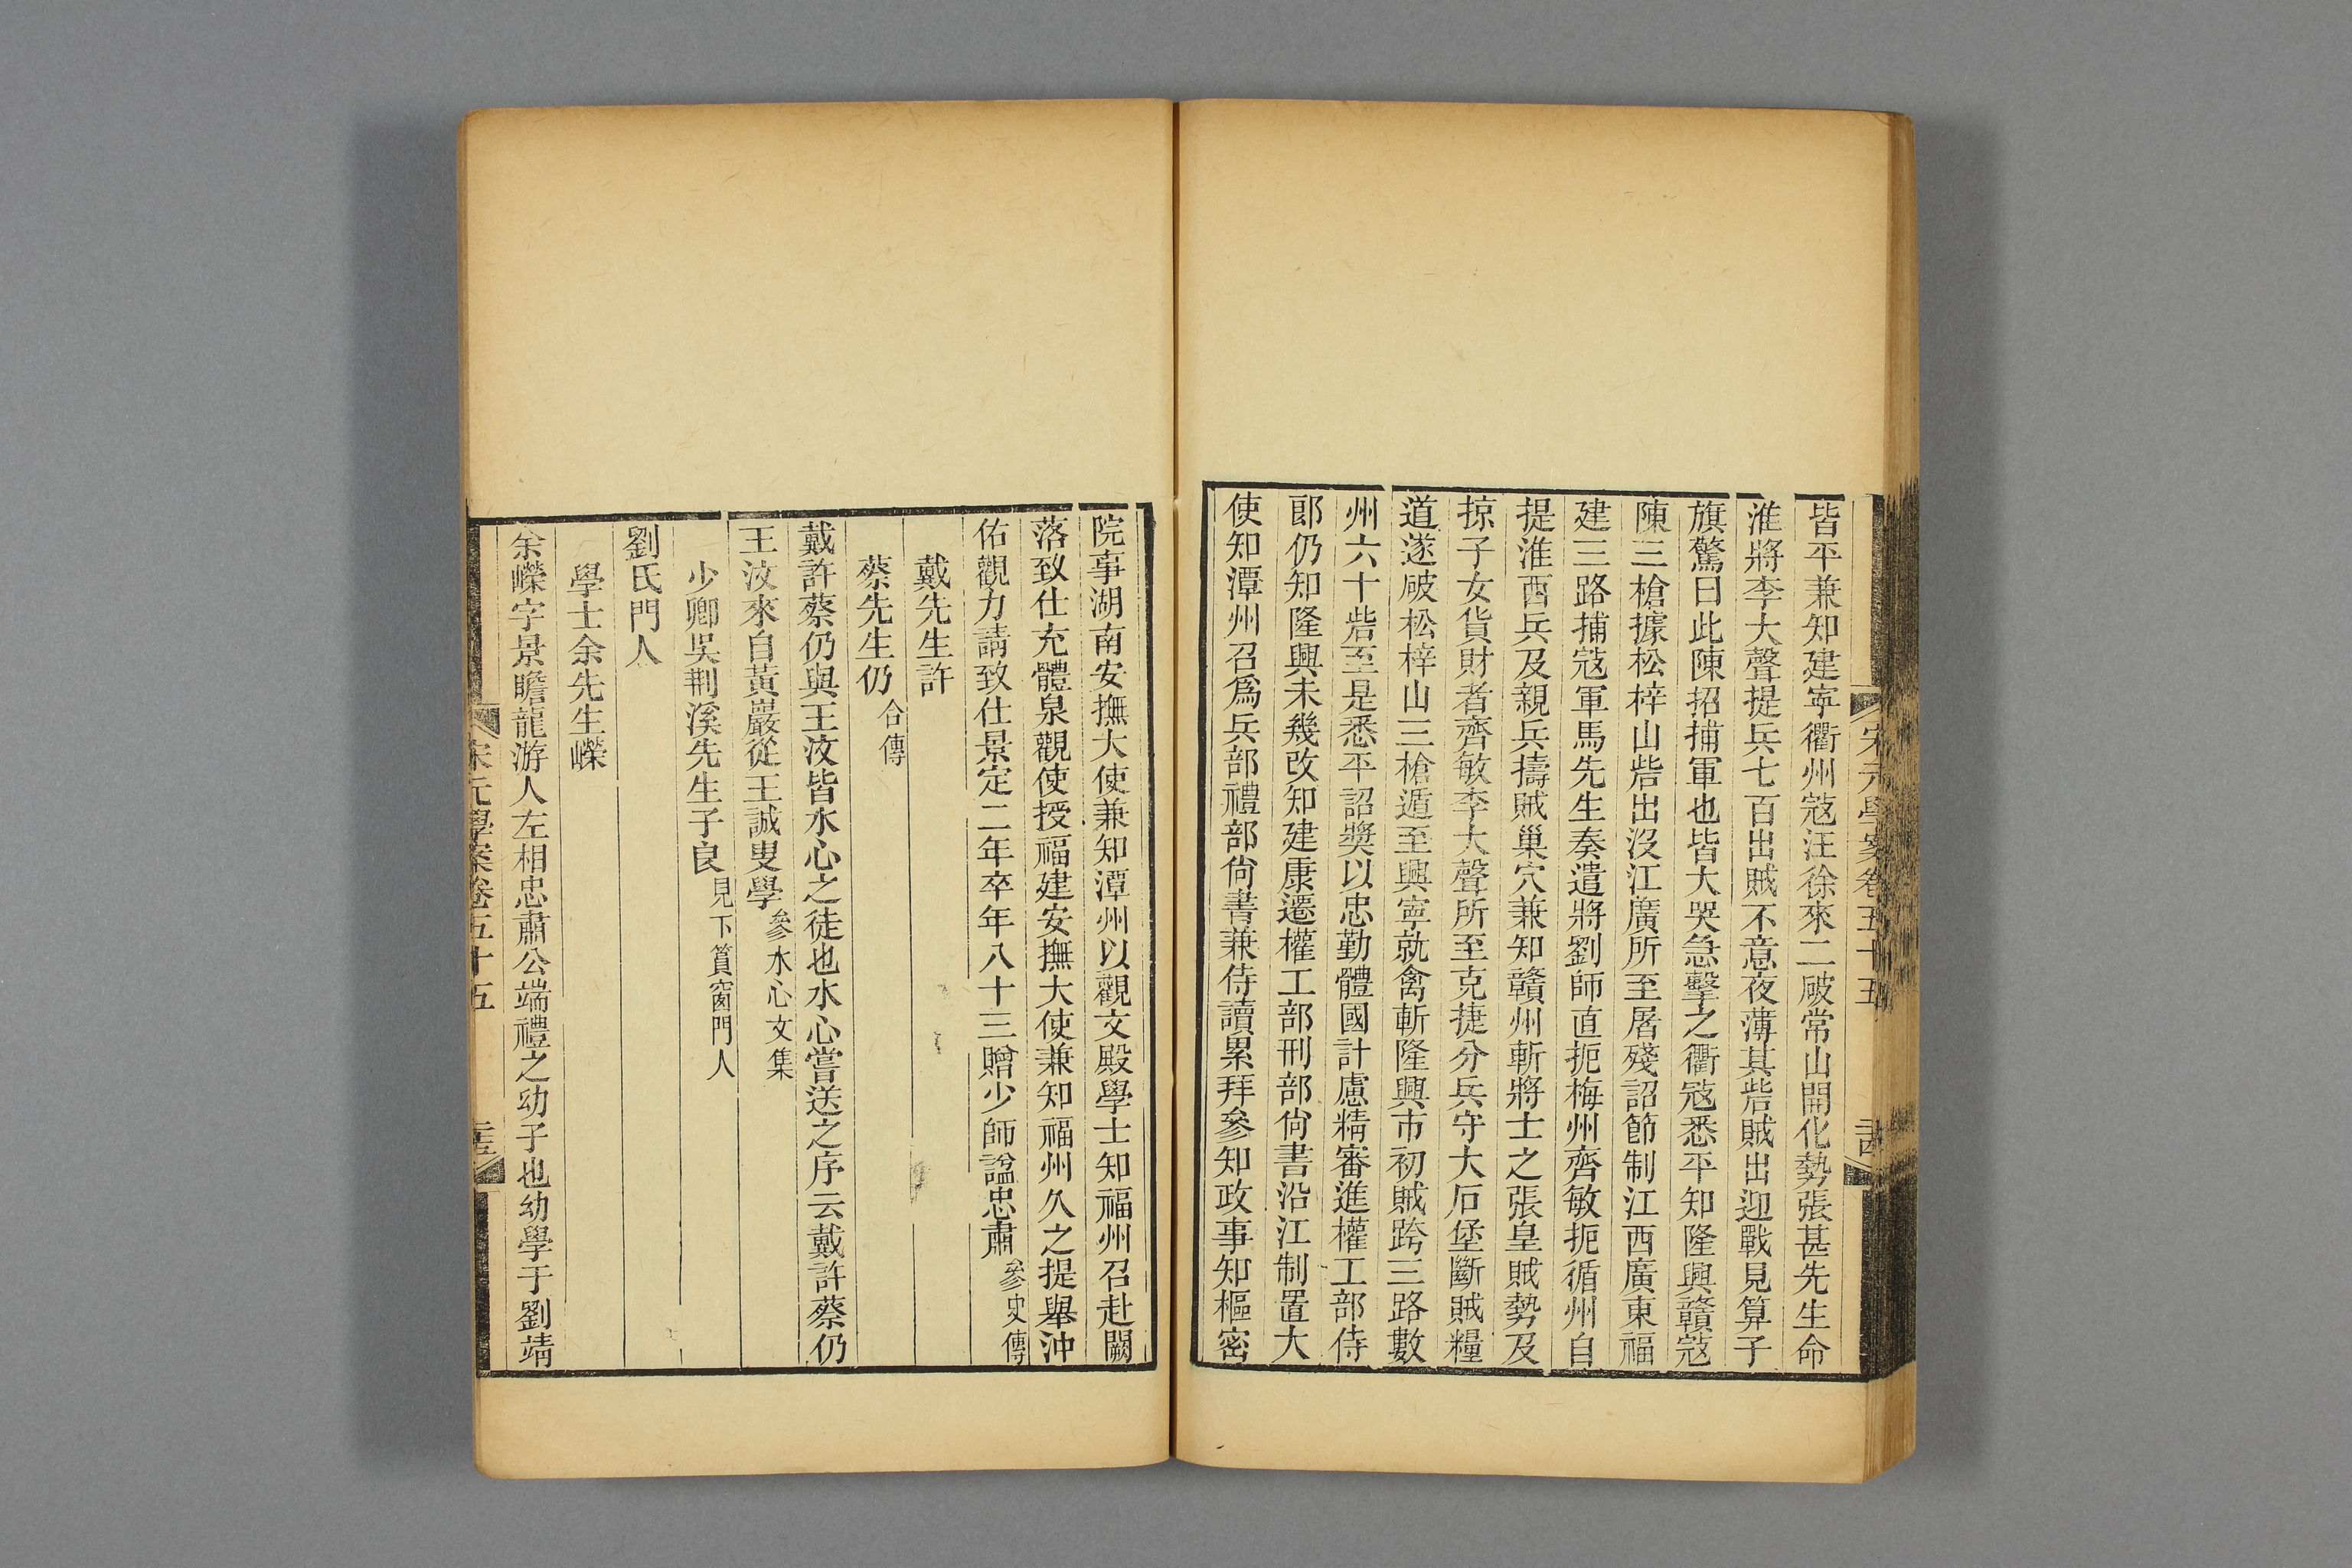 宋元學案卷五十五
三四
皆平兼知建寧衢州寇汪徐來二破常山開化勢張甚先生命
淮將李大聲提兵七百出賊不意夜薄其砦賊出迎戰見算子
旗驚曰此陳招捕軍也皆大哭急擊之衢寇悉平知隆興贛寇
陳三槍據松梓山砦出沒江廣所至屠殘詔節制江西廣東福
建三路捕寇軍馬先生奏遣將劉師直扼梅州齊敏扼循州自
提淮西兵及親兵擣賊巢穴兼知贛州斬將士之張皇賊勢及
掠子女貨財者齊敏李大聲所至克捷分兵守大石堡斷賊糧
道遂破松梓山三槍遁至興寧就禽斬隆興市初賊跨三路數
州六十砦至是悉平詔獎以忠勤體國計慮精審進權工部侍
郎仍知隆興未幾改知建康遷權工部刑部尚書沿江制置大
使知潭州召爲兵部禮部尚書兼侍讀累拜參知政事知樞密
院事湖南安撫大使兼知潭州以觀文殿學士知福州召赴闕
落致仕充體泉觀使授福建安撫大使兼知福州久之提舉沖
佑觀力請致仕景定二年卒年八十三贈少師謚忠肅參史傳
戴先生許
蔡先生仍合傳
戴許蔡仍與王汶皆水心之徒也水心嘗送之序云戴許蔡仍
王汶來自黃巖從王誠叟學參水心文集
少卿吳荆溪先生子良見下篔窗門人
劉氏門人
學士余先生嶸
余嶸字景瞻龍游人左相忠肅公端禮之幼子也幼學于劉靖
宋元學案卷五十五
三五